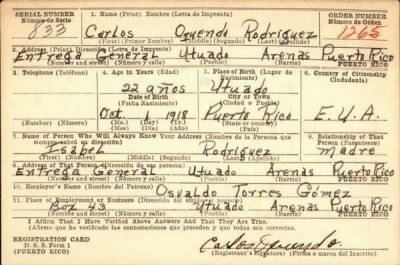 SERIAL NUMBER 1. Name (Print) Nombre (Letra de Imprenta) ORDER NUMBER
Número de Serie Número de Orden
833 Carlos Oquendo Rodríguez 1265
(First) (Primer Nombre) (Middle) (Segundo) (Last) (Apellido)
2. Address (Print) Dirección (Letra de Imprenta)
Entrega General Utuado Arenas Puerto Rico
(Number and street) (Número y calle) (Town) (Pueblo) PUERTO RICO
3. Telephone (Teléfono) 4. Age in Years (Edad) 5. Place of Birth (Lugar de Nacimiento) 6. Country of Citizenship
Ciudadanía
22 años Utuado
Date of Birth City or Town
(Fecha Nacimiento) (Ciudad o Pueblo)
Oct. 1918 Puerto Rico E.U.A.
(Mo.) (Day) (Yr.) State or country
(Mes) (Día) (Año)
7. Name of Person Who Will Always Know Your Address (Nombre de la Persona que siempre sabrá su dirección) 8. Relationship of That Person (Parentesco)
Isabel Rodríguez madre
(First) (Nombre) (Middle) (Segundo) (Last) (Apellido)
9. Address of That Person (Dirección de esa persona)
Entrega General Utuado Arenas Puerto Rico
(Number and street) (Número y calle) (Town) (Pueblo) PUERTO RICO
10. Employer's Name (Nombre del Patrono)
Osvaldo Torres Gómez
11. Place of Employment or Business (Dirección
Box 43 Utuado Arenas Puerto Rico
(Number and street) (Número y calle) (Town) (Pueblo) PUERTO RICO
I Affirm That I Have Verified Above Answers And That They Are True.
(Afirmo que he verificado las contestaciones que preceden y que todas son correctas.
REGISTRATION CARD
D. S. S. Form 1
(PUERTO RICO)
Carlos Oquendo
(Registrant's signature) (Firma o marca del Inscrito)